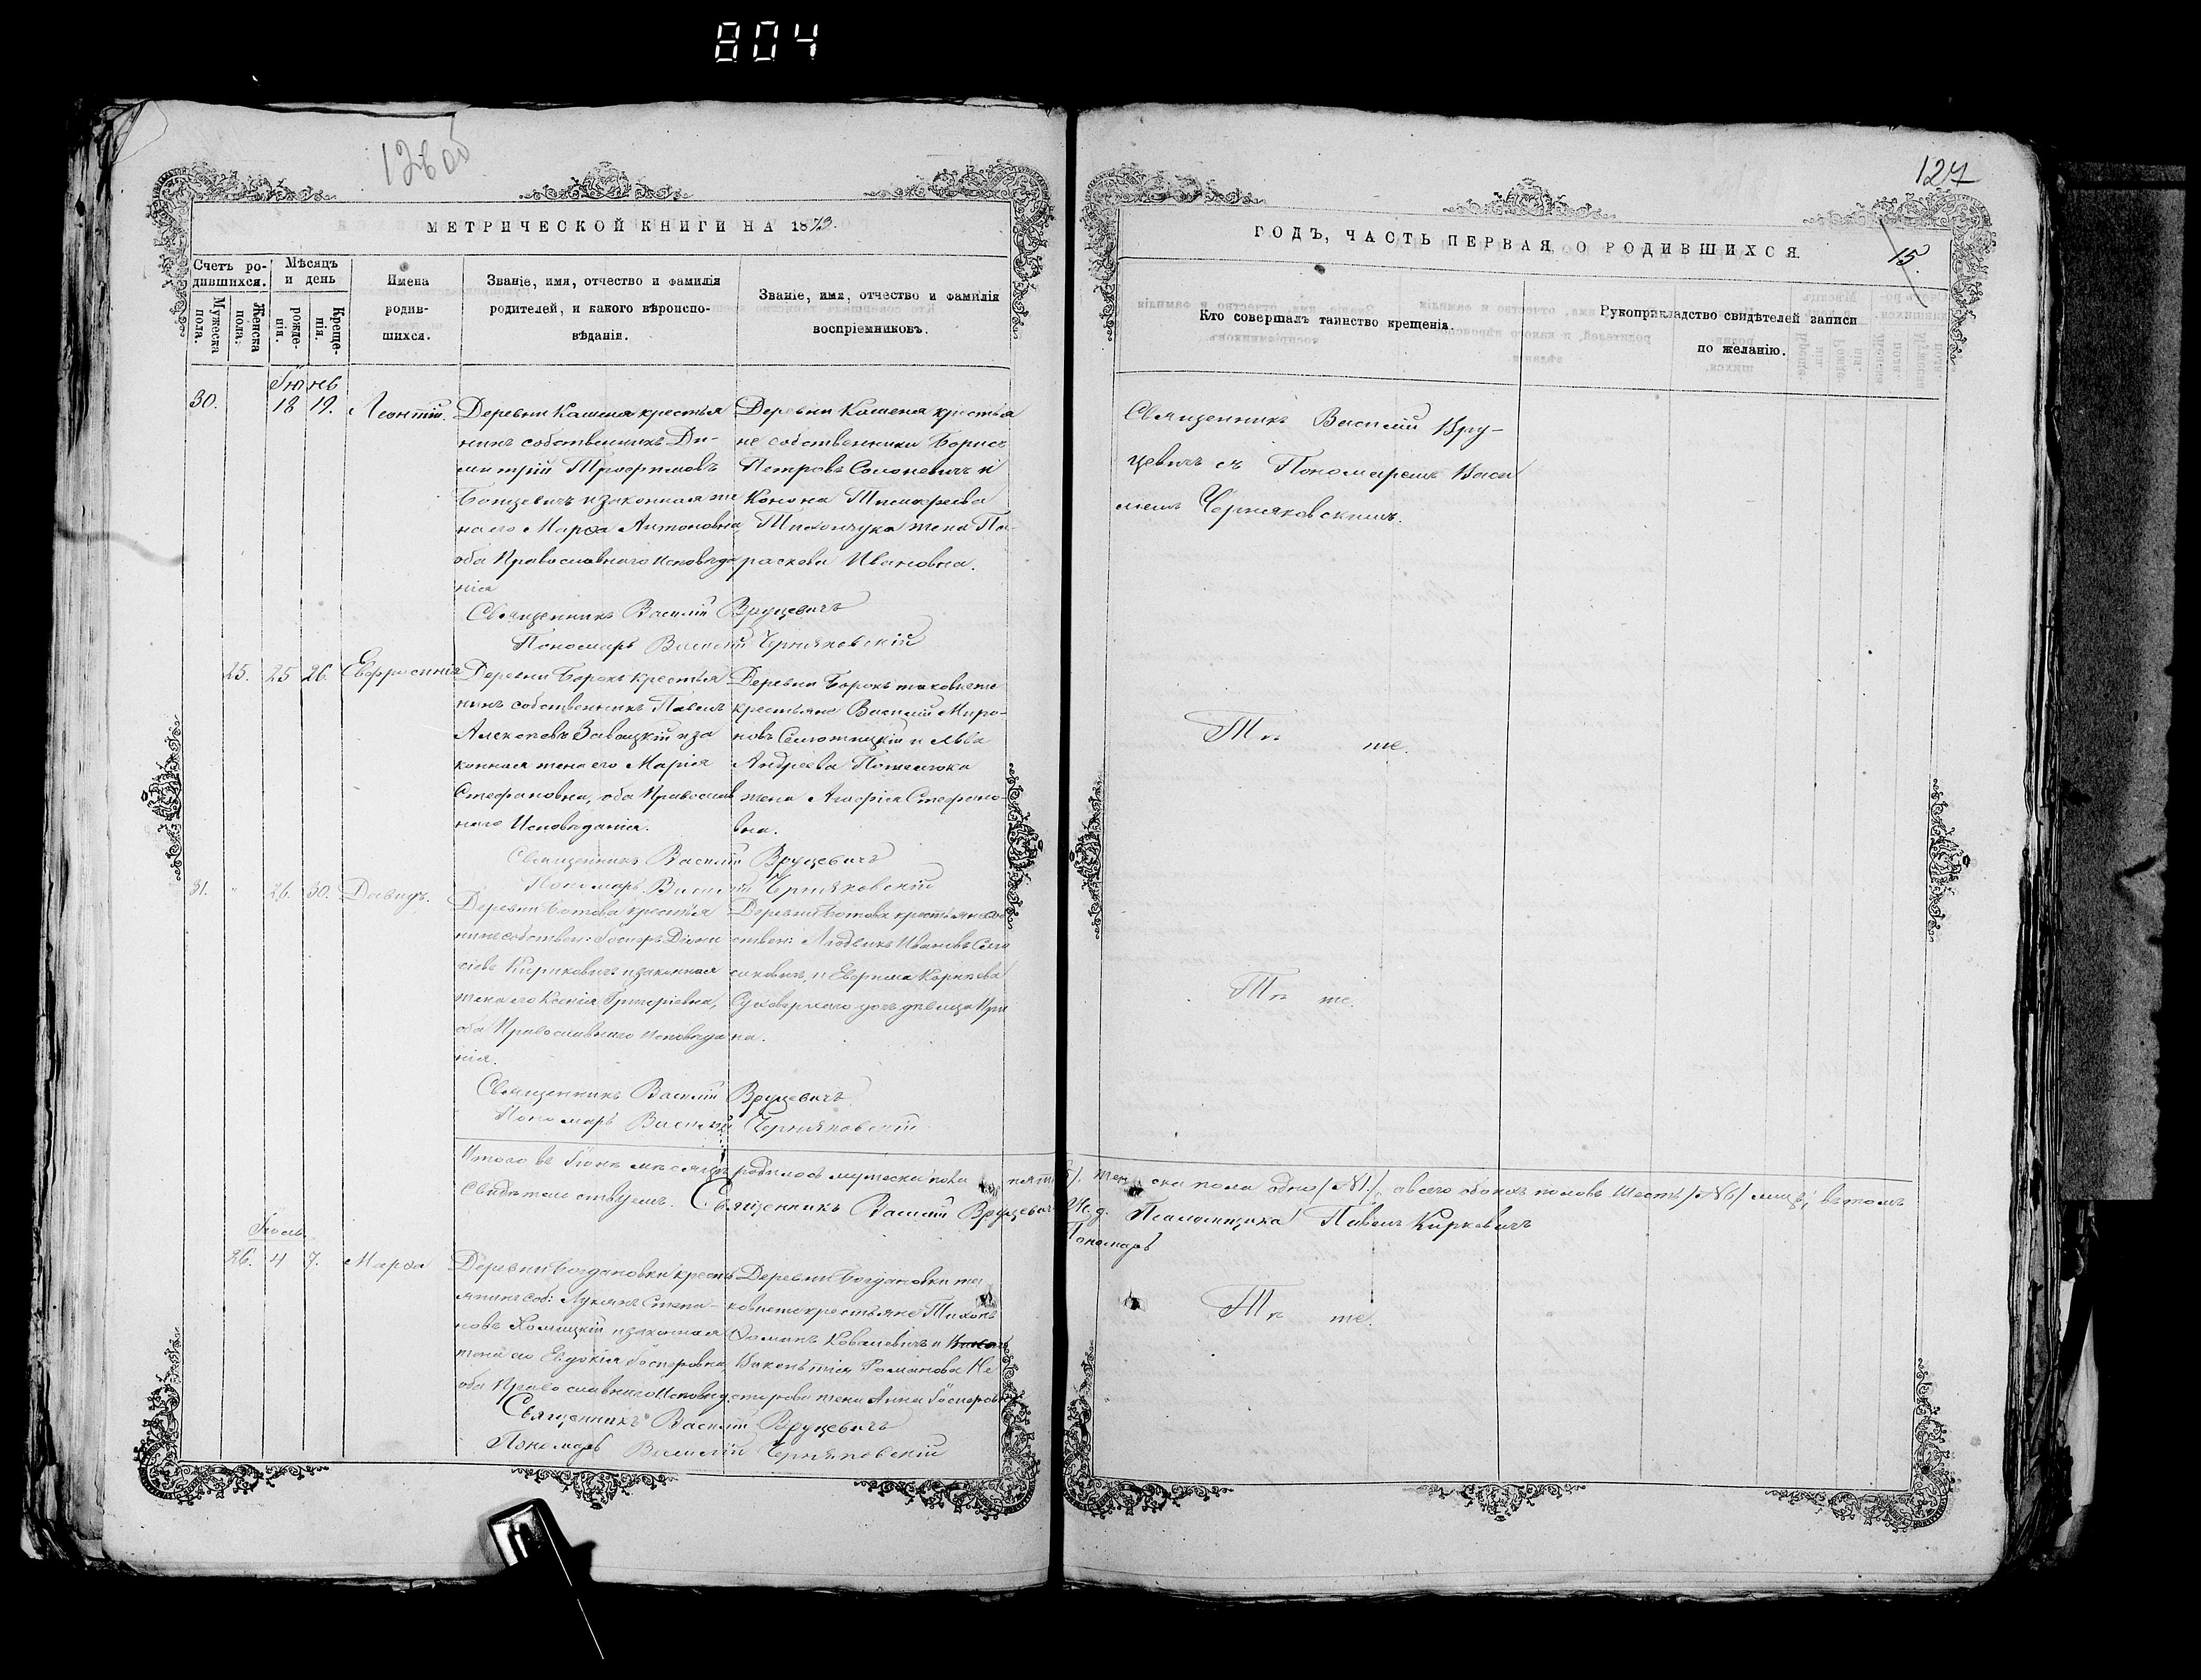 804
126 об
127
МЕТРИЧЕСКОЙ КНИГИ НА 1873.
ГОДЪ, ЧАСТЬ ПЕРВАЯ, О РОДИВШИХСЯ.
15.
Счетъ ро-
дившихся.
Мужеска пола.
Женска пола.
Мѣсяцъ
и день
рожде-
нія.
Креще-
нія.
Имена
родив-
шихся.
Званіе, имя, отчество и фамилія
родителей, и какого вѣроиспо-
вѣданія.
Званіе, имя, отчество и фамилія
воспріемниковъ.
Кто совершалъ таинство крещенія.
Рукоприкладство свидѣтелей записи
по желанію.
Іюнь
30. 18 19. Леонтій.
Деревни Кошеля крестья
нинъ собственникъ Ди-
митрій Трофимовъ
и законная же
на его Марѳа Антоновна
оба Православнаго Исповѣда
нія
Деревни Кошеля крестья
не собственники Борисъ
Петровъ Солоневичъ и
Конона
жена Па-
раскева Ивановна.
Священникъ Василій Вру-
цевичъ съ Пономаремъ Васи
лiемъ Черняковскимъ.
Священникъ Василій Вруцевичъ
Пономарь Василій Черняковскій
25. 25 26. Евфросинія
Деревни Борокъ крестья
нинъ собственникъ Павелъ
Алексѣевъ Завацкій и за
конная жена его Марія
Стефановна, оба Православ
наго Исповѣданія.
Деревни Борокъ таковые же
крестьяне Василій Миро-
новъ и Льва
Андреева
жена Агафія Стефано-
вна.
Тѣ же.
Священникъ Василій Вруцевичъ
Пономарь Василій Черняковскій
31. " 26. 30. Давидъ.
Деревни крестья
нинъ собствен: Іосифъ Діони
сіевъ Кириковичъ и законная
жена его Ксенія Григоріевна,
оба Православнаго Исповѣда
нія.
Деревни крестьяне соб
ствен: Людвикъ Ивановъ
и Евфима Корнѣева
дочь дѣвица Ири
на.
Тѣ же.
Священникъ Василій Вруцевичъ
Пономарь Василій Черняковскій
Итого въ Іюнѣ мѣсяцѣ родилось мужеска пола пять женска пола одно /№1./, а всего обоихъ половъ шесть /№6/ лицъ; въ томъ
свидѣтельствуемъ. Священникъ Василій Вруцевичъ
И. д. Псаломщика Павелъ Киркевичъ
Пономарь
Іюль
26. 4 7. Марѳа
Деревни Богдановки кресть
янинъ соб: Лукіянъ Степа-
новъ и законная
жена его Евдокія Іосифовна
оба Православнаго Исповѣд:
Деревни Богдановки та
ковые же крестьяне Тихонъ
Ѳоминъ Ковалевичъ и
Романова Не
стерова жена Анна Іосифовна
Тѣ же.
Священникъ Василій Вруцевичъ
Пономарь Василій Черняковскій